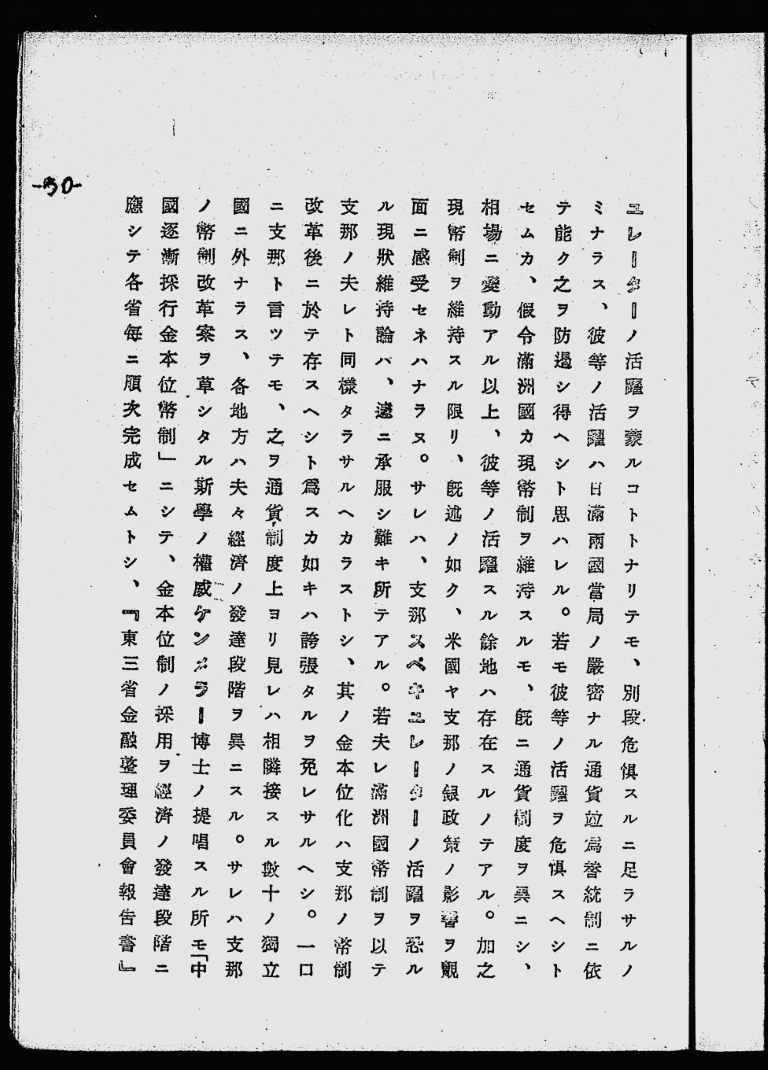 ユレーターノ活躍ヲ蒙ルコトトナリテモ、別段危惧スルニ足ラサルノ
ミナラス、彼等ノ活躍ハ日滿兩國當局ノ嚴密ナル通貨竝爲替統制ニ依
テ能ク之ヲ防遏シ得ヘシト思ハレル。若モ彼等ノ活躍ヲ危惧スヘシト
セムカ、假令滿洲國カ現幣制ヲ維持スルモ、既ニ通貨制度ヲ異ニシ、
相場ニ變動アル以上、彼等ノ活躍スル餘地ハ存在スルノテアル。加之
現幣制ヲ維持スル限リ、既述ノ如ク、米國ヤ支那ノ銀政策ノ影響ヲ覿
面ニ感受セネハナラヌ。サレハ、支那スペキユレーターノ活躍ヲ恐ル
ル現狀維持論バ、遽ニ承服シ難キ所テアル。若夫レ滿洲國幣制ヲ以テ
支那ノ夫レト同樣タラサルヘカラストシ、其ノ金本位化ハ支那ノ幣制
改革後ニ於テ存スヘシト爲スカ如キハ誇張タルヲ免レサルヘシ。一口
ニ支那ト言ツテモ、之ヲ通貨制度上ヨリ見レハ相隣接スル數十ノ獨立
國ニ外ナラス、各地方ハ夫々經濟ノ發達段階ヲ異ニスル。サレハ支那
ノ幣制改革案ヲ草シタル斯學ノ權威ケンメラー博士ノ提唱スル所モ「中
國逐漸採行金本位幣制」ニシテ、金本位制ノ採用ヲ經濟ノ發達段階ニ
應シテ各省每ニ順次完成セムトシ、『東三省金融整理委員會報告書』
-30-